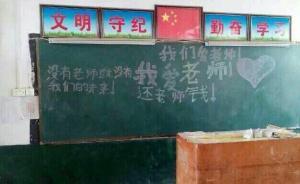 文明守纪 勤奋学习
没有老师就没有
我们的未来！
我们爱老师！
我爱老师！
还老师钱！